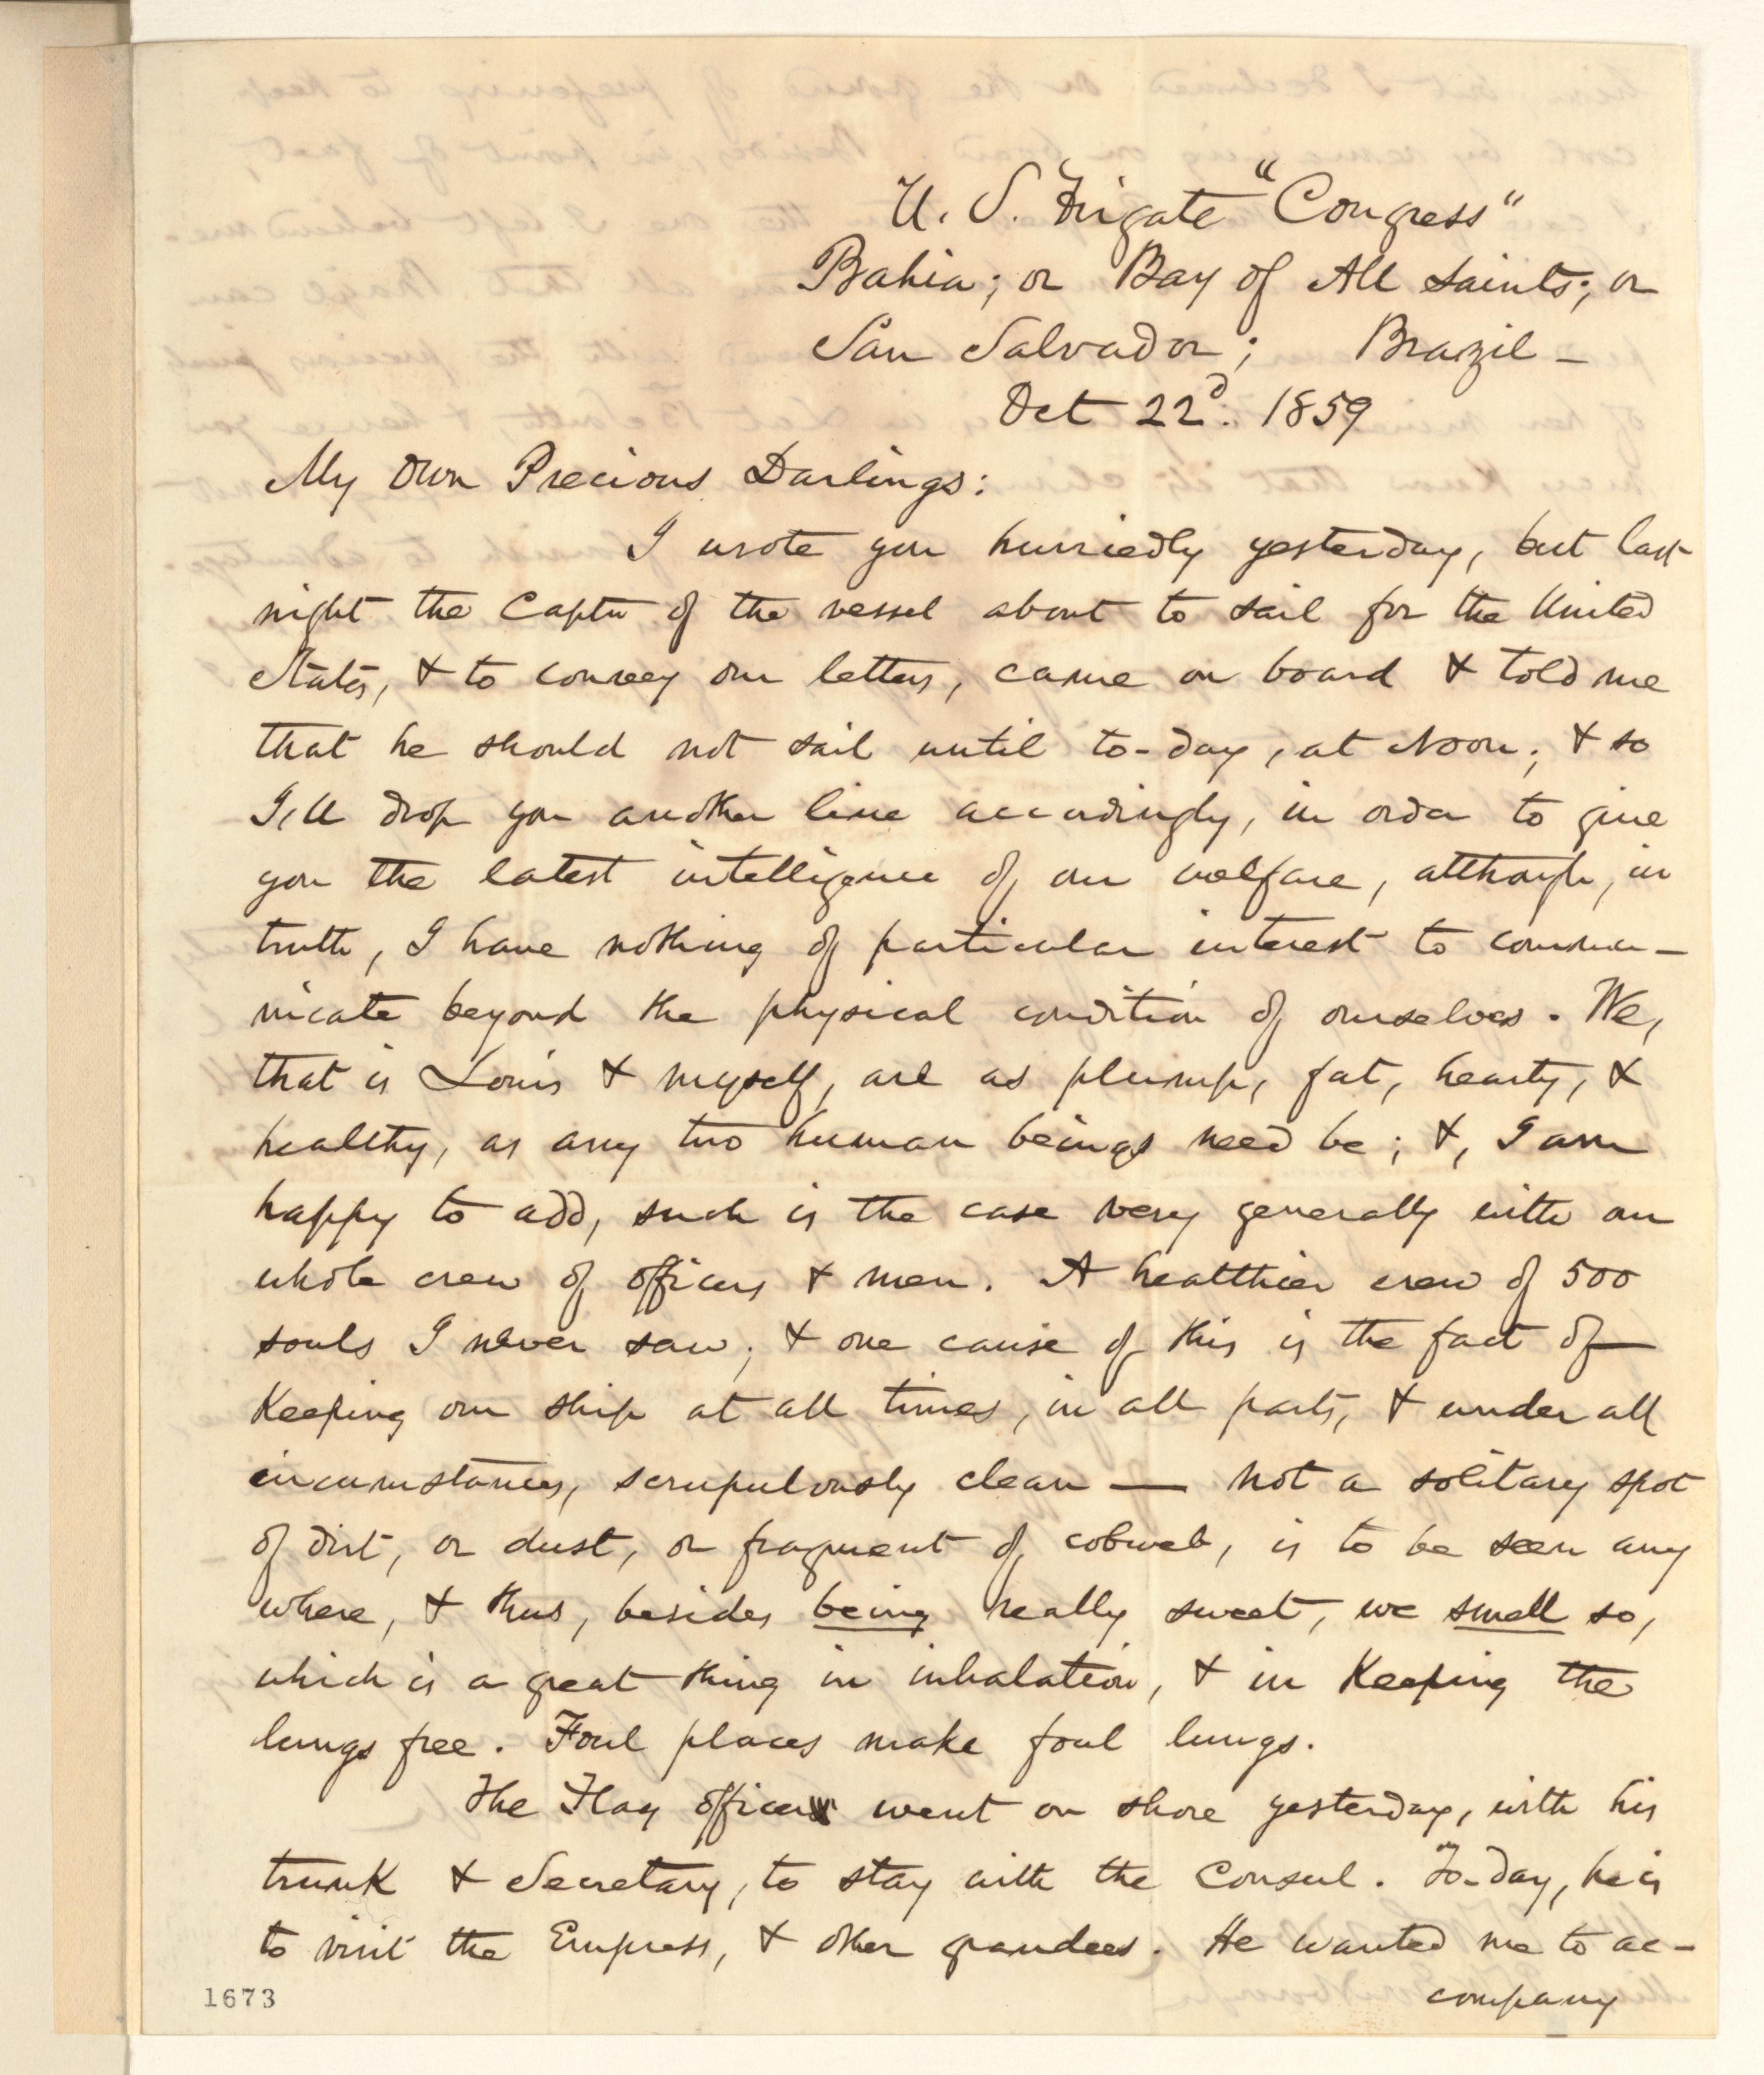 U. S. Frigate "Congress"
Bahia; or Bay of All Saints; or
San Salvador; Brazil —
Oct 22d. 1859
My Own Precious Darlings:
I wrote you hurriedly yesterday, but last
night the Captn of the vessel about to sail for the United
States, & to convey our letters, came on board & told me
that he should not sail until to-day, at Noon; & so
I'll drop you another line accordingly, in order to give
you the latest intelligence of our welfare, although, in
truth, I have nothing of particular interest to commu-
nicate beyond the physical condition of ourselves. We,
that is Louis & myself, are as plump, fat, hearty, &
healthy, as any two human beings need be; &, I am
happy to add, such is the case very generally with our
whole crew of officers & men. A healthier crew of 500
souls I never saw; & one cause of this is the fact of
Keeping our ship at all times, in all parts, & under all
circumstances, scrupulously clean — not a solitary spot
of dirt, or dust, or fragment of cobweb, is to be seen any
where, & thus, besides being really sweet, we smell so,
which is a great thing in inhalation, & in Keeping the
lungs free. Foul places make foul lungs.
The Flag officer went on shore yesterday, with his
trunk & Secretary, to stay with the Consul. To-day, he is
to visit the Empress, & other grandees. He wanted me to ac-
company
1673